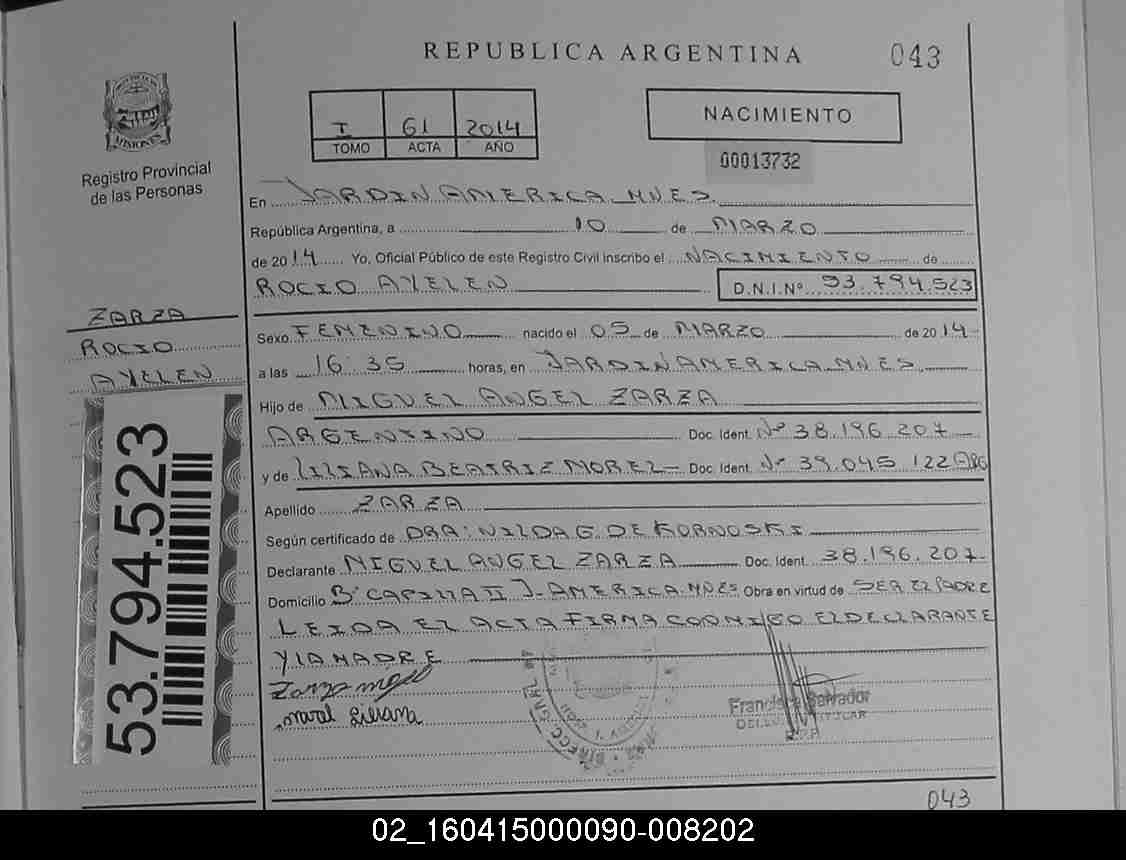 REPUBLICA ARGENTINA
043
PROVINCIA DE
MISIONES
Registro Provincial
de las Personas
I 61 2014
TOMO ACTA AÑO
NACIMIENTO
00013732
En JARDIN AMERICA MNES
República Argentina, a 10 de MARZO
de 2014 Yo, Oficial Público de este Registro Civil inscribo el NACIMIENTO de
ROCIO AYELEN D.N.I.Nº 53.794.523
ZARZA
ROCIO
AYELEN
53.794.523
Sexo FEMENINO nacido el 05 de MARZO de 2014
a las 16:35 horas, en JARDIN AMERICA MNES
Hijo de MIGUEL ANGEL ZARZA
ARGENTINO Doc. Ident. Nº 38.196.207
y de LILIANA BEATRIZ MOREL Doc. Ident. Nº 39.045.122 ARG
Apellido ZARZA
Según certificado de DRA: NILDA G. DE KORNOSKI
Declarante MIGUEL ANGEL ZARZA Doc. Ident. 38.196.207
Domicilio Bº CAPILLA II J. AMERICA MNES Obra en virtud de SER EL PADRE
LEIDA EL ACTA FIRMA CONMIGO EL DECLARANTE
Y LA MADRE
Zarza
Liliana
Salvador
TITULAR
R.P.P.
043
02_160415000090-008202